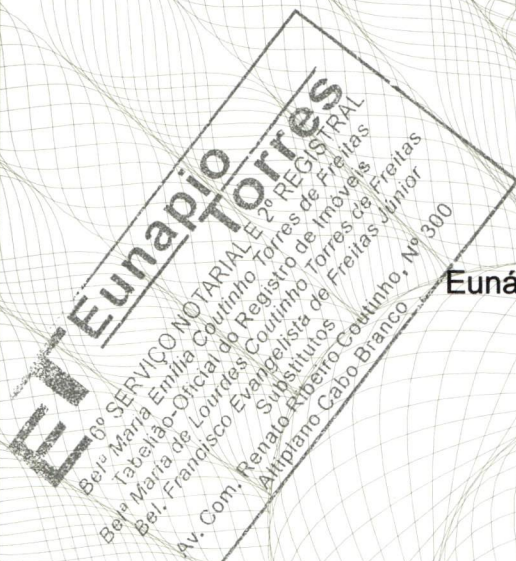 ET Eunapio
Torres
6º SERVIÇO NOTARIAL E 2º REGISTRAL
Belª Maria Emilia Coutinho Torres de Freitas
Tabelião-Oficial do Registro de Imóveis
Belª Maria de Lourdes Coutinho Torres de Freitas
Bel. Francisco Evangelista de Freitas Júnior
Substitutos
Av. Com. Renato Ribeiro Coutinho, Nº 300
Altiplano Cabo Branco
Euná